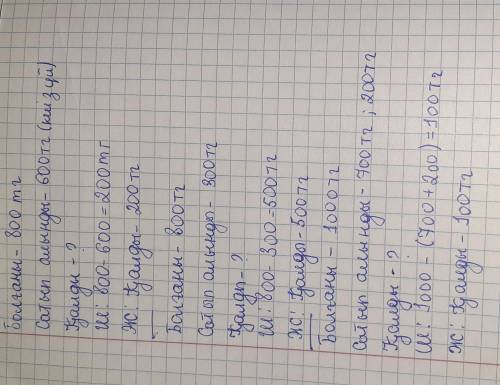 Болғаны - 800 тг
Сатып алынды - 600тг (киіз үй)
Қалды - ?
Ш: 800-600=200тг
Ж: Қалды - 200тг
Болғаны - 800тг
Сатып алынды - 300тг
Қалды - ?
Ш: 800-300=500тг
Ж: Қалды - 500тг
Болғаны - 1000тг
Сатып алынды - 700тг ; 200тг
Қалды - ?
Ш: 1000 - (700+200)=100тг
Ж: Қалды - 100тг